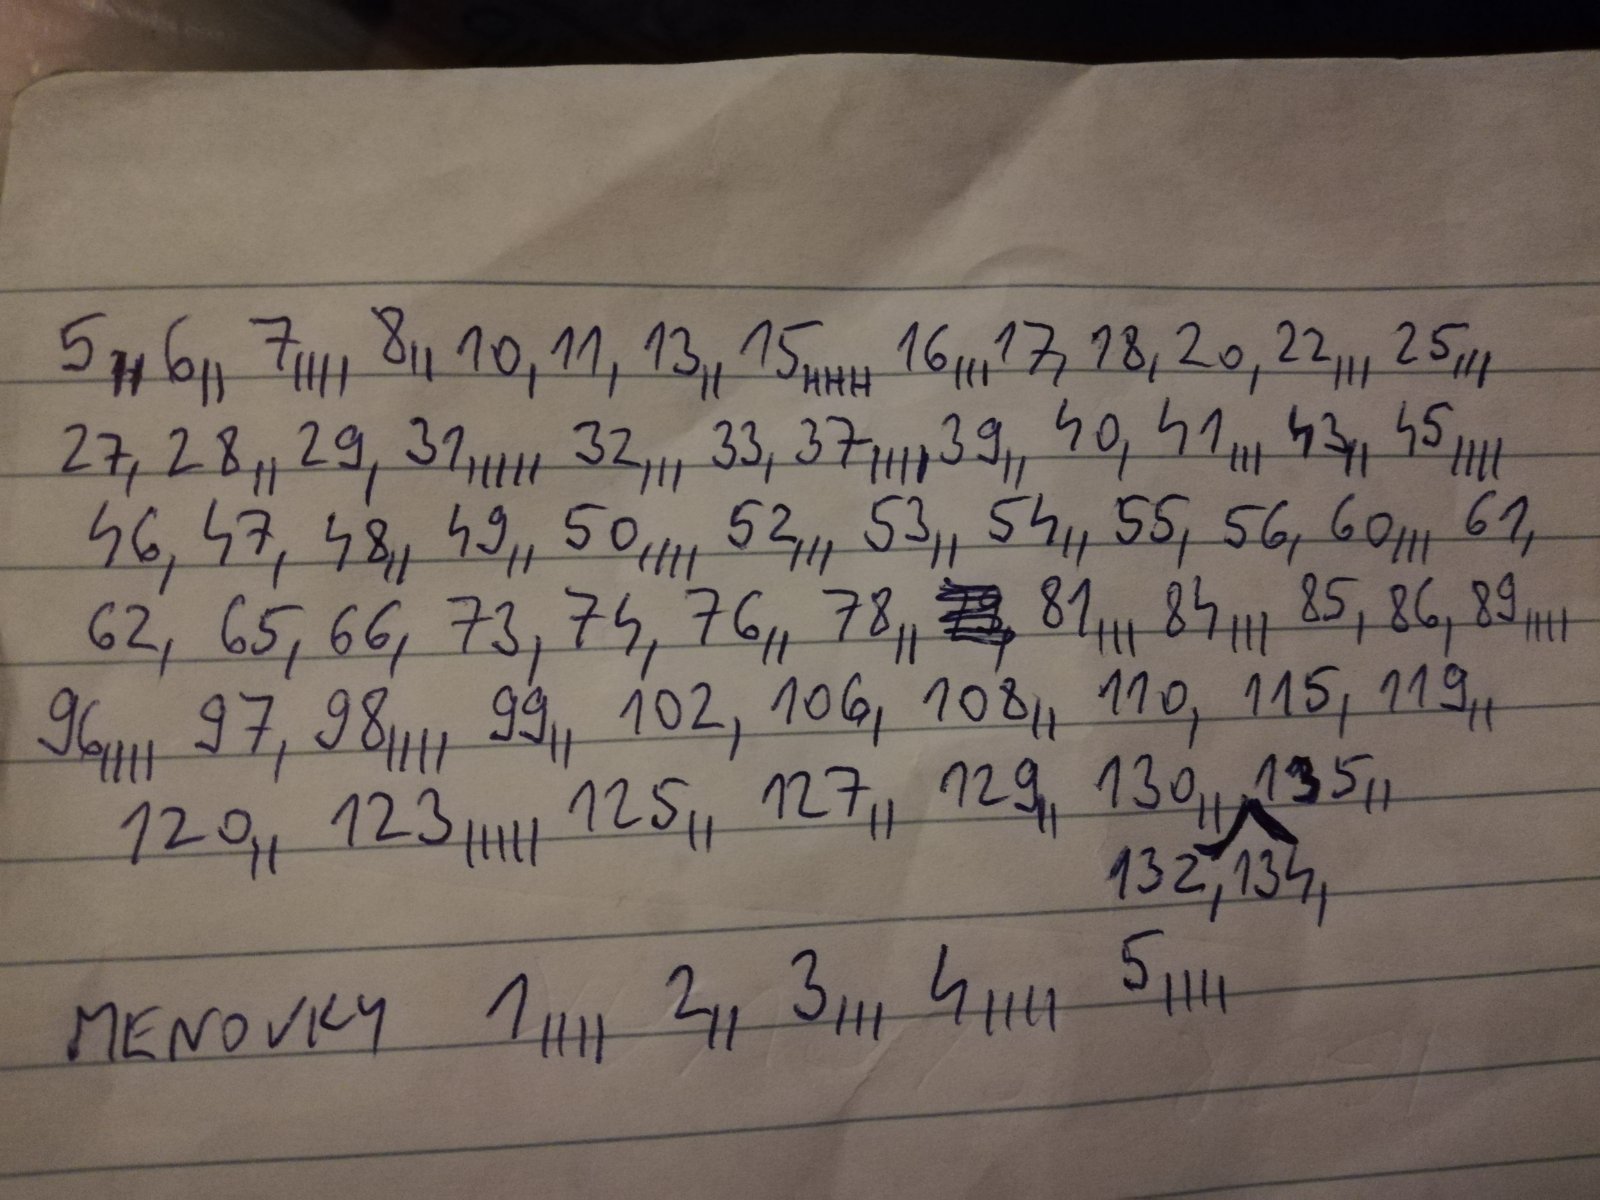 5,, 6,, 7,,,, 8,, 10, 11, 13,, 15,,,,,, 16,,, 17, 18, 20, 22,,, 25,,,
27, 28,, 29, 31,,,,, 32,,, 33, 37,,,,, 39,, 40, 41,,, 43,, 45,,,,
46, 47, 48,, 49,, 50,,,, 52,,, 53,, 54,, 55, 56, 60,,, 61,
62, 65, 66, 73, 74, 76,, 78,, 81,,, 84,,, 85, 86, 89,,,,
96,,,, 97, 98,,,, 99,, 102, 106, 108,, 110, 115, 119,,
120,, 123,,,,, 125,, 127,, 129,, 130,, 135,,
132, 134,
MENOVKY 1,,,, 2,, 3,,, 4,,,, 5,,,,